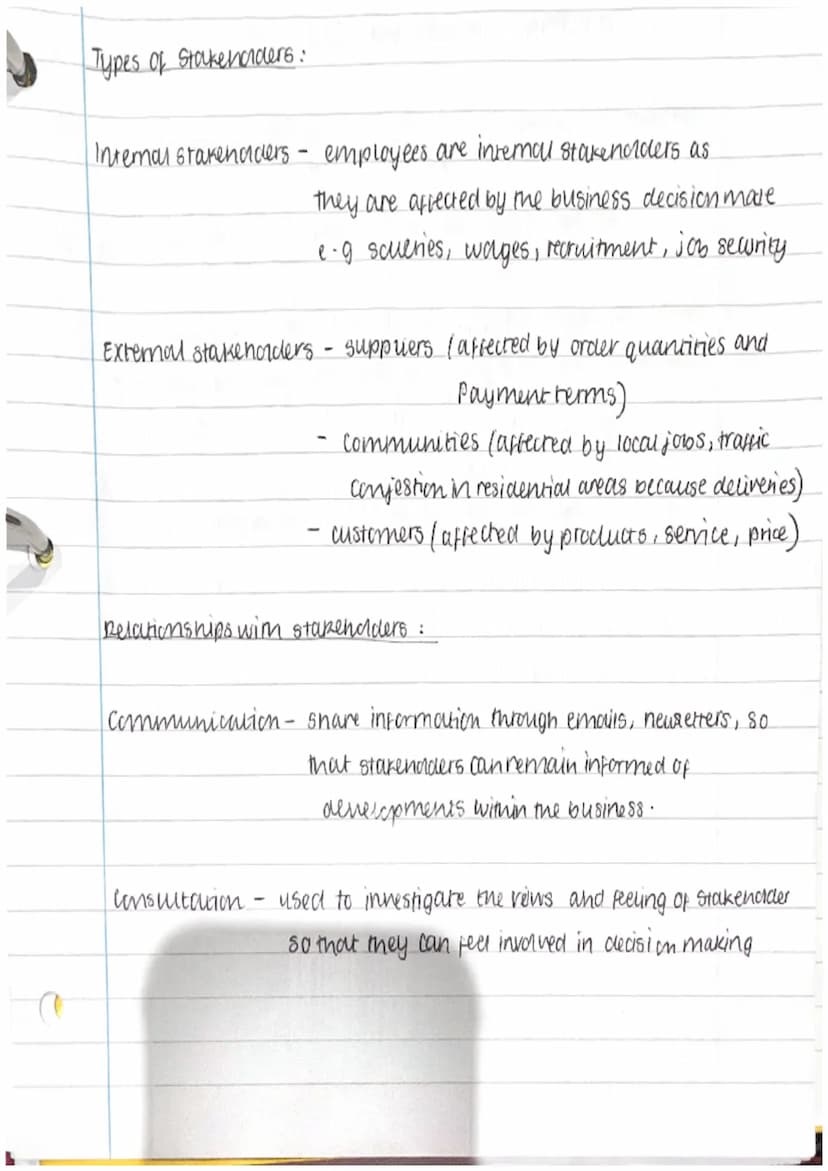 Types of Stakeholders :
Internal stakeholders - employees are internal stakeholders as
they are affected by the business decision mate
e.g salaries, wages, recruitment, job security
External stakeholders - suppliers (affected by order quantities and
Payment terms)
- communities (affected by local jobs, traffic
conjestion in residential areas because deliveries)
- customers (affected by products, service, price)
Relationships with stakeholders :
Communication - share information through emails, newsletters, so
that stakeholders can remain informed of
developments within the business.
Consultation - used to investigate the veiws and feeling of stakeholder
so that they can feel involved in decision making